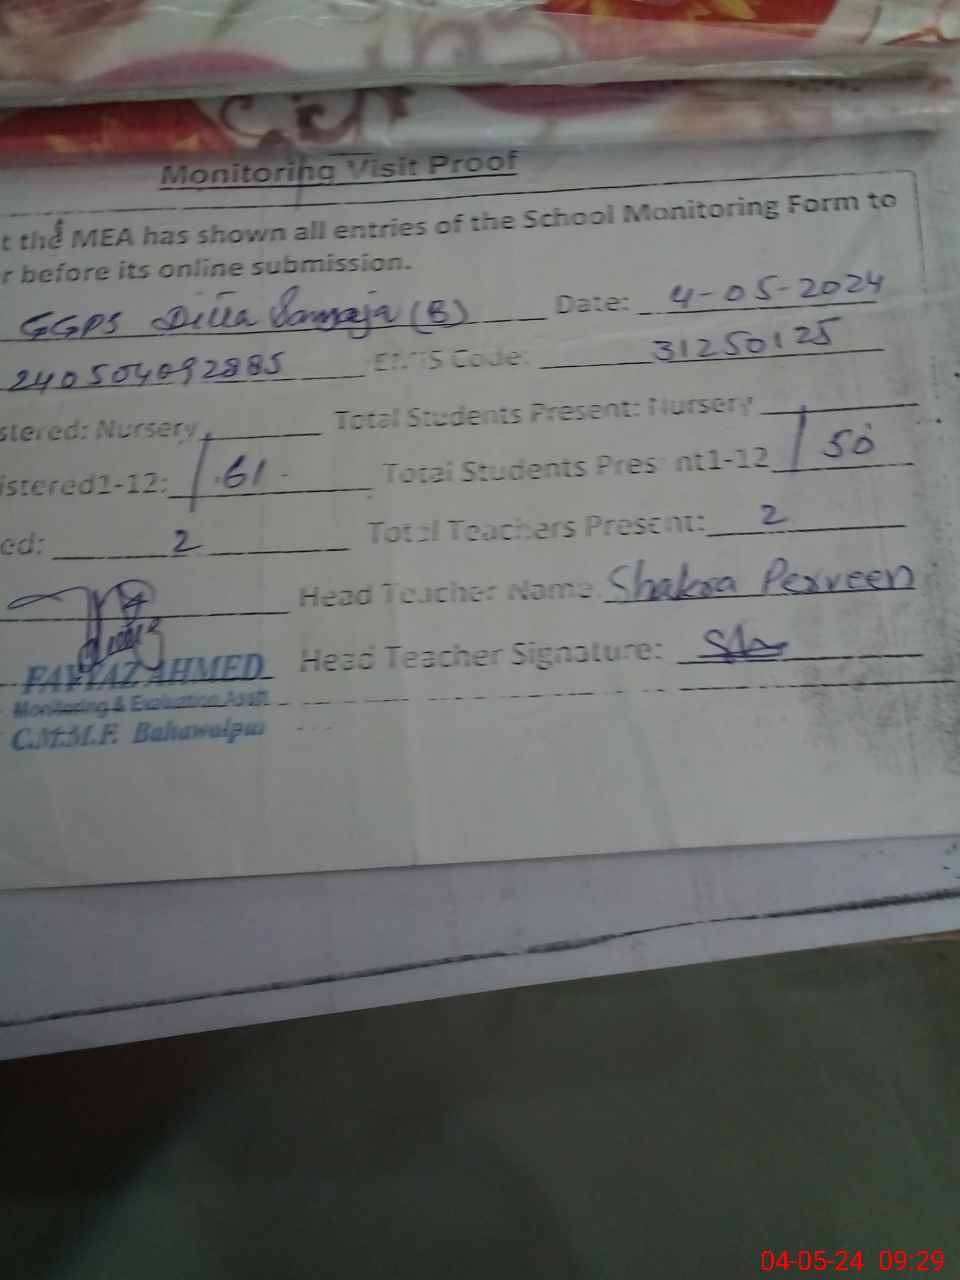 Monitoring Visit Proof
t the MEA has shown all entries of the School Monitoring Form to
r before its online submission.
GGPS Ditta (B) Date: 4-05-2024
240504092885 EMIS Code: 31250125
stered: Nursery Total Students Present: Nursery
istered1-12: 61 Total Students Present1-12 50
ed: 2 Total Teachers Present: 2
Head Teacher Name: Shakra Perveen
FAYYAZ AHMED Head Teacher Signature:
Monitoring & Evaluation Asstt.
C.M.M.F. Bahawalpur
04-05-24 09:29